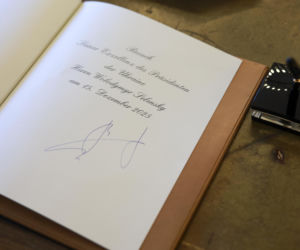 Besuch
Seiner Exzellenz des Präsidenten
der Ukraine
Herrn Wolodymyr Selensky
am 15. Dezember 2025